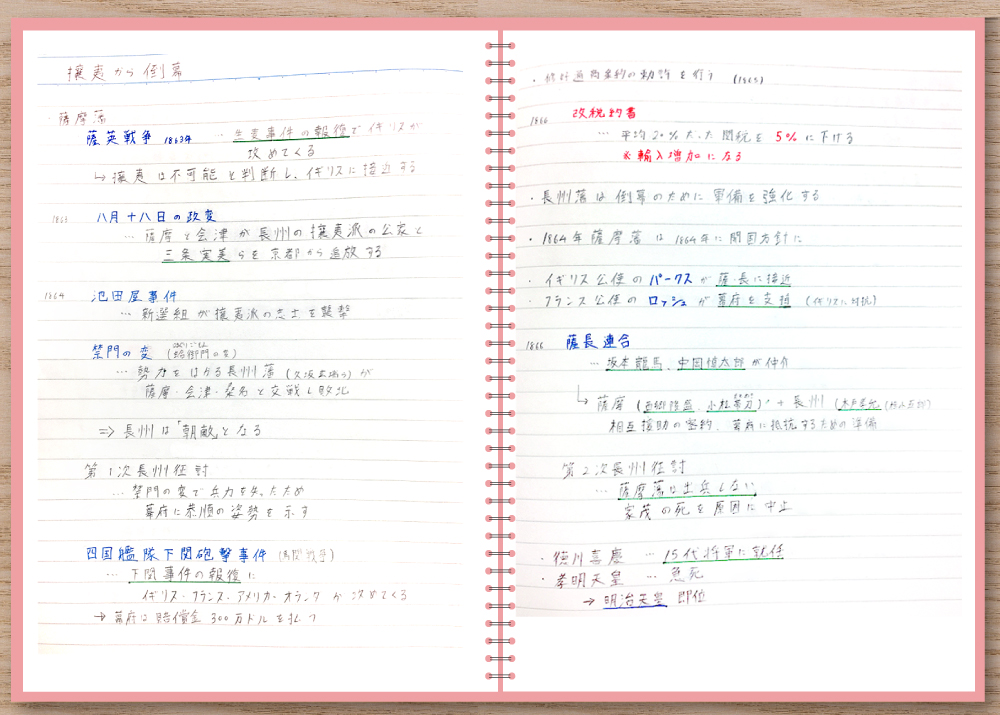 攘夷から倒幕
・薩摩藩
薩英戦争 1863年 … 生麦事件の報復でイギリスが
攻めてくる
↳ 攘夷は不可能と判断し、イギリスに接近する
1863 八月十八日の政変
… 薩摩と会津が長州の攘夷派の公家と
三条実美らを京都から追放する
1864 池田屋事件
… 新選組が攘夷派の志士を襲撃
禁門の変 (蛤御門の変)
はまぐりごもん
… 勢力をはかる長州藩 (久坂玄瑞ら) が
薩摩・会津・桑名と交戦し敗北
⇒ 長州は「朝敵」となる
第1次長州征討
… 禁門の変で兵力を失ったため
幕府に恭順の姿勢を示す
四国艦隊下関砲撃事件 (馬関戦争)
… 下関事件の報復に
イギリス・フランス・アメリカ・オランダが攻めてくる
→ 幕府は賠償金300万ドルを払う
・修好通商条約の勅許を行う (1865)
1866 改税約書
… 平均20%だった関税を5%に下げる
※輸入増加になる
・長州藩は倒幕のために軍備を強化する
・1864年薩摩藩は1864年に開国方針に
・イギリス公使のパークスが薩・長に接近
・フランス公使のロッシュが幕府を支援 (イギリスに対抗)
1866 薩長連合
… 坂本龍馬、中岡慎太郎が仲介
↳ 薩摩 (西郷隆盛、小松帯刀) + 長州 (木戸孝允 (桂小五郎)
相互援助の密約、幕府に抵抗するための準備
第2次長州征討
… 薩摩藩は出兵しない
家茂の死を原因に中止
・徳川喜慶 … 15代将軍に就任
・孝明天皇 … 急死
→ 明治天皇 即位